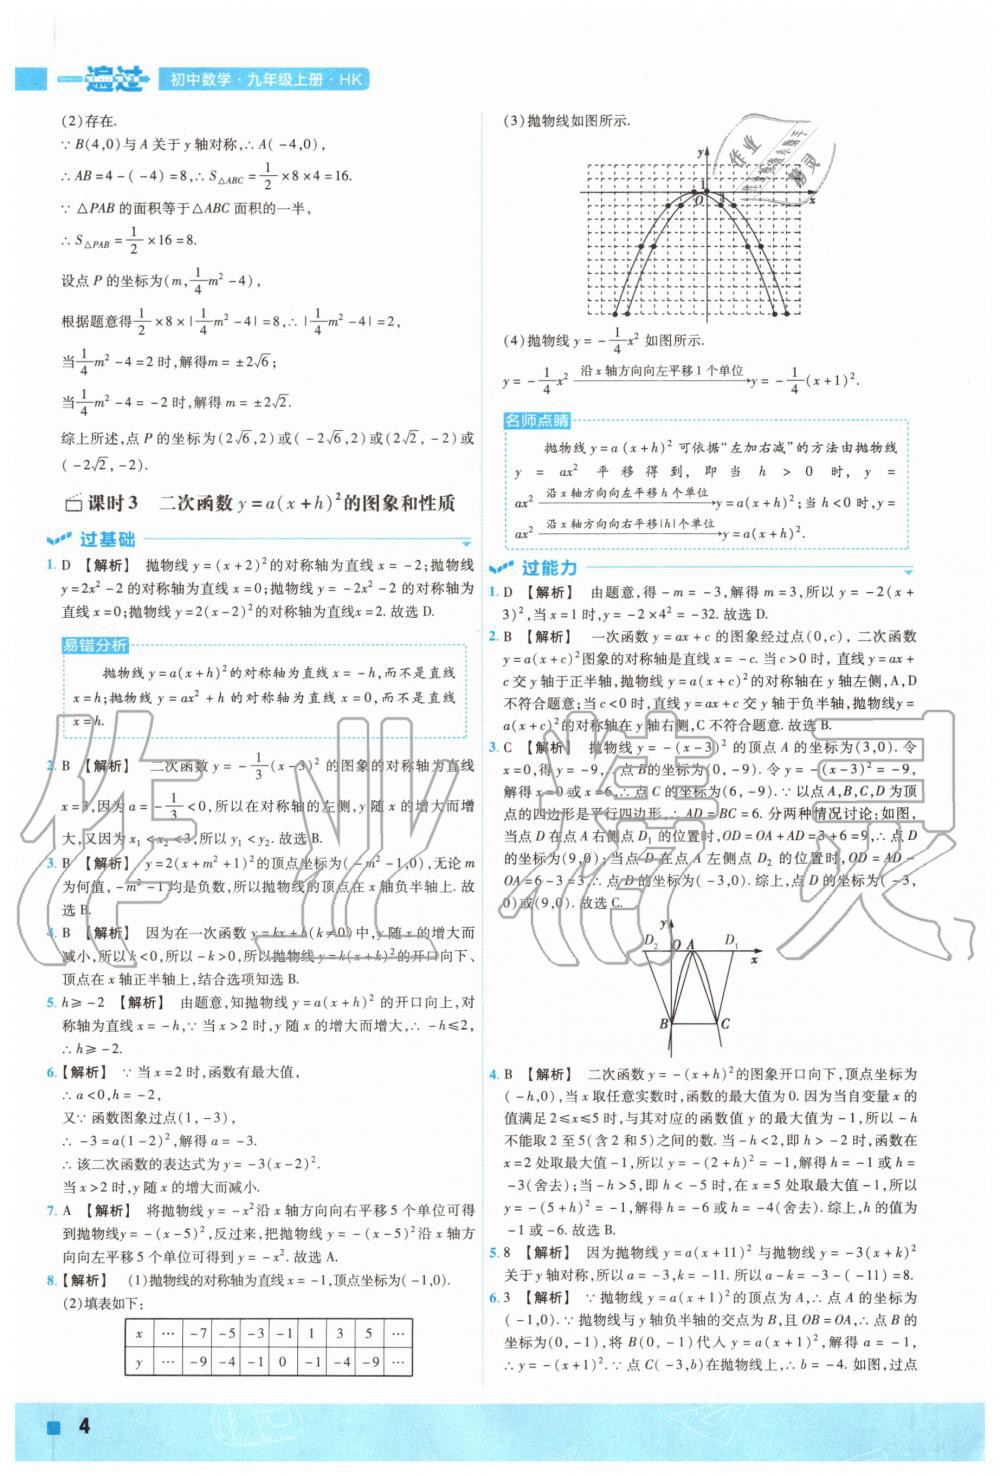 一遍过 初中数学·九年级上册·HK
(2)存在.
∵ B(4,0)与 A 关于 y 轴对称,∴ A(-4,0),
∴ AB=4-(-4)=8,∴ S△ABC=1/2×8×4=16.
∵ △PAB 的面积等于△ABC 面积的一半,
∴ S△PAB=1/2×16=8.
设点 P 的坐标为(m,1/4m²-4),
根据题意得1/2×8×|1/4m²-4|=8,∴|1/4m²-4|=2,
当1/4m²-4=2时,解得m=±2√6;
当1/4m²-4=-2时,解得m=±2√2.
综上所述,点 P 的坐标为(2√6,2)或(-2√6,2)或(2√2,-2)或
(-2√2,-2).
课时3 二次函数 y=a(x+h)²的图象和性质
过基础
1. D 【解析】 抛物线 y=(x+2)²的对称轴为直线 x=-2;抛物线
y=2x²-2的对称轴为直线 x=0;抛物线 y=-2x²-2的对称轴为
直线 x=0;抛物线 y=2(x-2)²的对称轴为直线x=2. 故选 D.
易错分析
抛物线 y=a(x+h)²的对称轴为直线 x=-h,而不是直线
x=h;抛物线 y=ax²+h 的对称轴为直线 x=0,而不是直线
x=h.
2. B 【解析】 二次函数 y=-1/3(x-3)² 的图象的对称轴为直线
x=3,因为 a=-1/3<0,所以在对称轴的左侧,y 随 x 的增大而增
大,又因为 x₁<x₂<3,所以 y₁<y₂. 故选 B.
3. B 【解析】 y=2(x+m²+1)²的顶点坐标为(-m²-1,0),无论 m
为何值,-m²-1均是负数,所以抛物线的顶点在 x 轴负半轴上. 故
选 B.
4. B 【解析】 因为在一次函数 y=kx+h(k≠0)中,y 随 x 的增大而
减小,所以 k<0,所以-h>0,所以抛物线 y=k(x+h)²的开口向下、
顶点在 x 轴正半轴上,结合选项知选 B.
5. h≥-2 【解析】 由题意,知抛物线 y=a(x+h)² 的开口向上,对
称轴为直线 x=-h,∵ 当 x>2 时,y 随 x 的增大而增大,∴ -h≤2,
∴ h≥-2.
6. 【解析】 ∵ 当 x=2 时,函数有最大值,
∴ a<0,h=-2,
又∵ 函数图象过点(1,-3),
∴ -3=a(1-2)²,解得 a=-3.
∴ 该二次函数的表达式为 y=-3(x-2)².
当 x>2 时,y 随 x 的增大而减小.
7. A 【解析】 将抛物线 y=-x²沿 x 轴方向向右平移 5 个单位可得
到抛物线y=-(x-5)²,反过来,把抛物线 y=-(x-5)²沿 x 轴方
向向左平移 5 个单位可得到 y=-x². 故选 A.
8. 【解析】 (1)抛物线的对称轴为直线 x=-1,顶点坐标为(-1,0).
(2)填表如下:
x … -7 -5 -3 -1 1 3 5 …
y … -9 -4 -1 0 -1 -4 -9 …
4
(3)抛物线如图所示.
y
1
O 1 x
(4)抛物线 y=-1/4x² 如图所示.
y=-1/4x² 沿 x 轴方向向左平移 1 个单位→y=-1/4(x+1)².
名师点睛
抛物线 y=a(x+h)² 可依据“左加右减”的方法由抛物线
y = ax² 平移得到,即当 h > 0 时,y =
ax² 沿 x 轴方向向左平移 h 个单位→y=a(x+h)²;当 h<0 时,y=
ax² 沿 x 轴方向向右平移|h|个单位→y=a(x+h)².
过能力
1. D 【解析】 由题意,得-m=-3,解得 m=3,所以 y=-2(x+
3)²,当 x=1 时,y=-2×4²=-32. 故选 D.
2. B 【解析】 一次函数 y=ax+c 的图象经过点(0,c),二次函数
y=a(x+c)²图象的对称轴是直线 x=-c. 当 c>0 时,直线 y=ax+
c 交 y 轴于正半轴,抛物线 y=a(x+c)²的对称轴在 y 轴左侧,A,D
不符合题意;当 c<0时,直线 y=ax+c 交 y 轴于负半轴,抛物线y=
a(x+c)²的对称轴在 y 轴右侧,C 不符合题意. 故选 B.
3. C 【解析】 抛物线 y=-(x-3)² 的顶点 A 的坐标为(3,0). 令
x=0,得 y=-9,∴ 点 B的坐标为(0,-9). 令 y=-(x-3)²=-9,
解得 x=0 或 x=6,∴ C 的坐标为(6,-9). ∵ 以点 A,B,C,D 为顶
点的四边形是平行四边形,∴ AD=BC=6. 分两种情况讨论:如图,
当点 D 在点 A 右侧点 D₁ 的位置时,OD=OA+AD=3+6=9,∴ 点 D
的坐标为(9,0);当点 D 在点 A 左侧点 D₂ 的位置时,OD=AD-
OA=6-3=3,∴ 点 D 的坐标为(-3,0). 综上,点 D 的坐标为(-3,
0)或(9,0). 故选 C.
y
D₂ O A D₁ x
B C
4. B 【解析】 二次函数 y=-(x+h)²的图象开口向下,顶点坐标为
(-h,0),当 x 取任意实数时,函数的最大值为 0. 因为当自变量 x 的
值满足 2≤x≤5 时,与其对应的函数值 y 的最大值为-1,所以-h
不能取 2 至 5(含 2 和 5)之间的数. 当-h<2,即 h>-2时,函数在
x=2 处取最大值-1,所以 y=-(2+h)²=-1,解得 h=-1 或 h=
-3(舍去);当-h>5,即 h<-5 时,在 x=5 处取最大值-1,所以
y=-(5+h)²=-1,解得 h=-6 或 h=-4(舍去). 综上,h 的值为
-1 或-6. 故选 B.
5. 8 【解析】 因为抛物线 y=a(x+11)² 与抛物线 y=-3(x+k)²
关于 y 轴对称,所以 a=-3,k=-11. 所以 a-k=-3-(-11)=8.
6. 3 【解析】 ∵ 抛物线 y=a(x+1)²的顶点为 A,∴ 点 A 的坐标为
(-1,0). ∵ 抛物线与 y 轴负半轴的交点为 B,且 OB=OA,∴ 点 B 的
坐标为(0,-1),将 B(0,-1)代入 y=a(x+1)²,解得 a=-1,
∴ y=-(x+1)². ∵ 点 C(-3,b)在抛物线上,∴ b=-4. 如图,过点
作业精灵